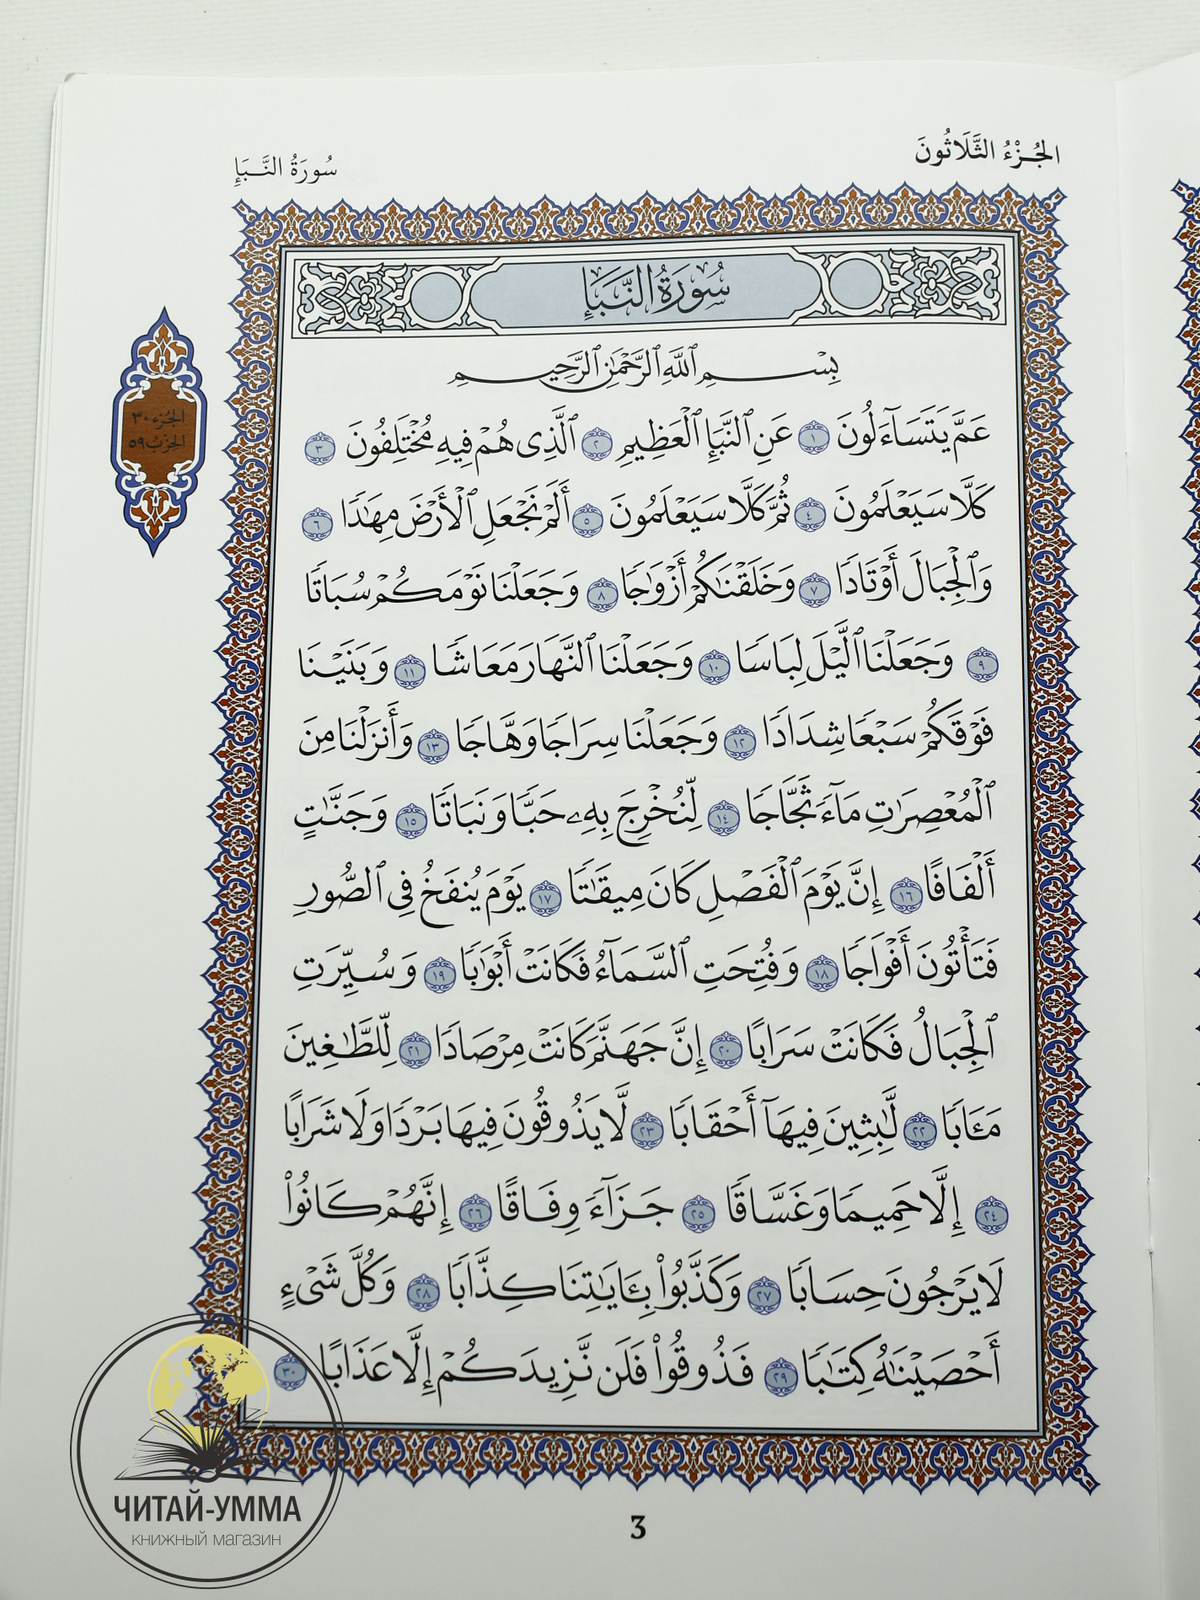 الجُزْءُ الثَّلَاثُونَ
سُورَةُ النَّبَإِ
سُورَةُ النَّبَإِ
الجزء ٣٠
الحزب ٥٩
بِسْمِ ٱللَّهِ ٱلرَّحْمَٰنِ ٱلرَّحِيمِ
عَمَّ يَتَسَآءَلُونَ ١ عَنِ ٱلنَّبَإِ ٱلْعَظِيمِ ٢ ٱلَّذِى هُمْ فِيهِ مُخْتَلِفُونَ ٣
كَلَّا سَيَعْلَمُونَ ٤ ثُمَّ كَلَّا سَيَعْلَمُونَ ٥ أَلَمْ نَجْعَلِ ٱلْأَرْضَ مِهَٰدًا ٦
وَٱلْجِبَالَ أَوْتَادًا ٧ وَخَلَقْنَٰكُمْ أَزْوَٰجًا ٨ وَجَعَلْنَا نَوْمَكُمْ سُبَاتًا
٩ وَجَعَلْنَا ٱلَّيْلَ لِبَاسًا ١٠ وَجَعَلْنَا ٱلنَّهَارَ مَعَاشًا ١١ وَبَنَيْنَا
فَوْقَكُمْ سَبْعًا شِدَادًا ١٢ وَجَعَلْنَا سِرَاجًا وَهَّاجًا ١٣ وَأَنزَلْنَا مِنَ
ٱلْمُعْصِرَٰتِ مَآءً ثَجَّاجًا ١٤ لِّنُخْرِجَ بِهِۦ حَبًّا وَنَبَاتًا ١٥ وَجَنَّٰتٍ
أَلْفَافًا ١٦ إِنَّ يَوْمَ ٱلْفَصْلِ كَانَ مِيقَٰتًا ١٧ يَوْمَ يُنفَخُ فِى ٱلصُّورِ
فَتَأْتُونَ أَفْوَاجًا ١٨ وَفُتِحَتِ ٱلسَّمَآءُ فَكَانَتْ أَبْوَٰبًا ١٩ وَسُيِّرَتِ
ٱلْجِبَالُ فَكَانَتْ سَرَابًا ٢٠ إِنَّ جَهَنَّمَ كَانَتْ مِرْصَادًا ٢١ لِّلطَّٰغِينَ
مَـَٔابًا ٢٢ لَّٰبِثِينَ فِيهَآ أَحْقَابًا ٢٣ لَّا يَذُوقُونَ فِيهَا بَرْدًا وَلَا شَرَابًا
٢٤ إِلَّا حَمِيمًا وَغَسَّاقًا ٢٥ جَزَآءً وِفَاقًا ٢٦ إِنَّهُمْ كَانُوا۟
لَا يَرْجُونَ حِسَابًا ٢٧ وَكَذَّبُوا۟ بِـَٔايَٰتِنَا كِذَّابًا ٢٨ وَكُلَّ شَىْءٍ
أَحْصَيْنَٰهُ كِتَٰبًا ٢٩ فَذُوقُوا۟ فَلَن نَّزِيدَكُمْ إِلَّا عَذَابًا ٣٠
3
ЧИТАЙ-УММА
КНИЖНЫЙ МАГАЗИН